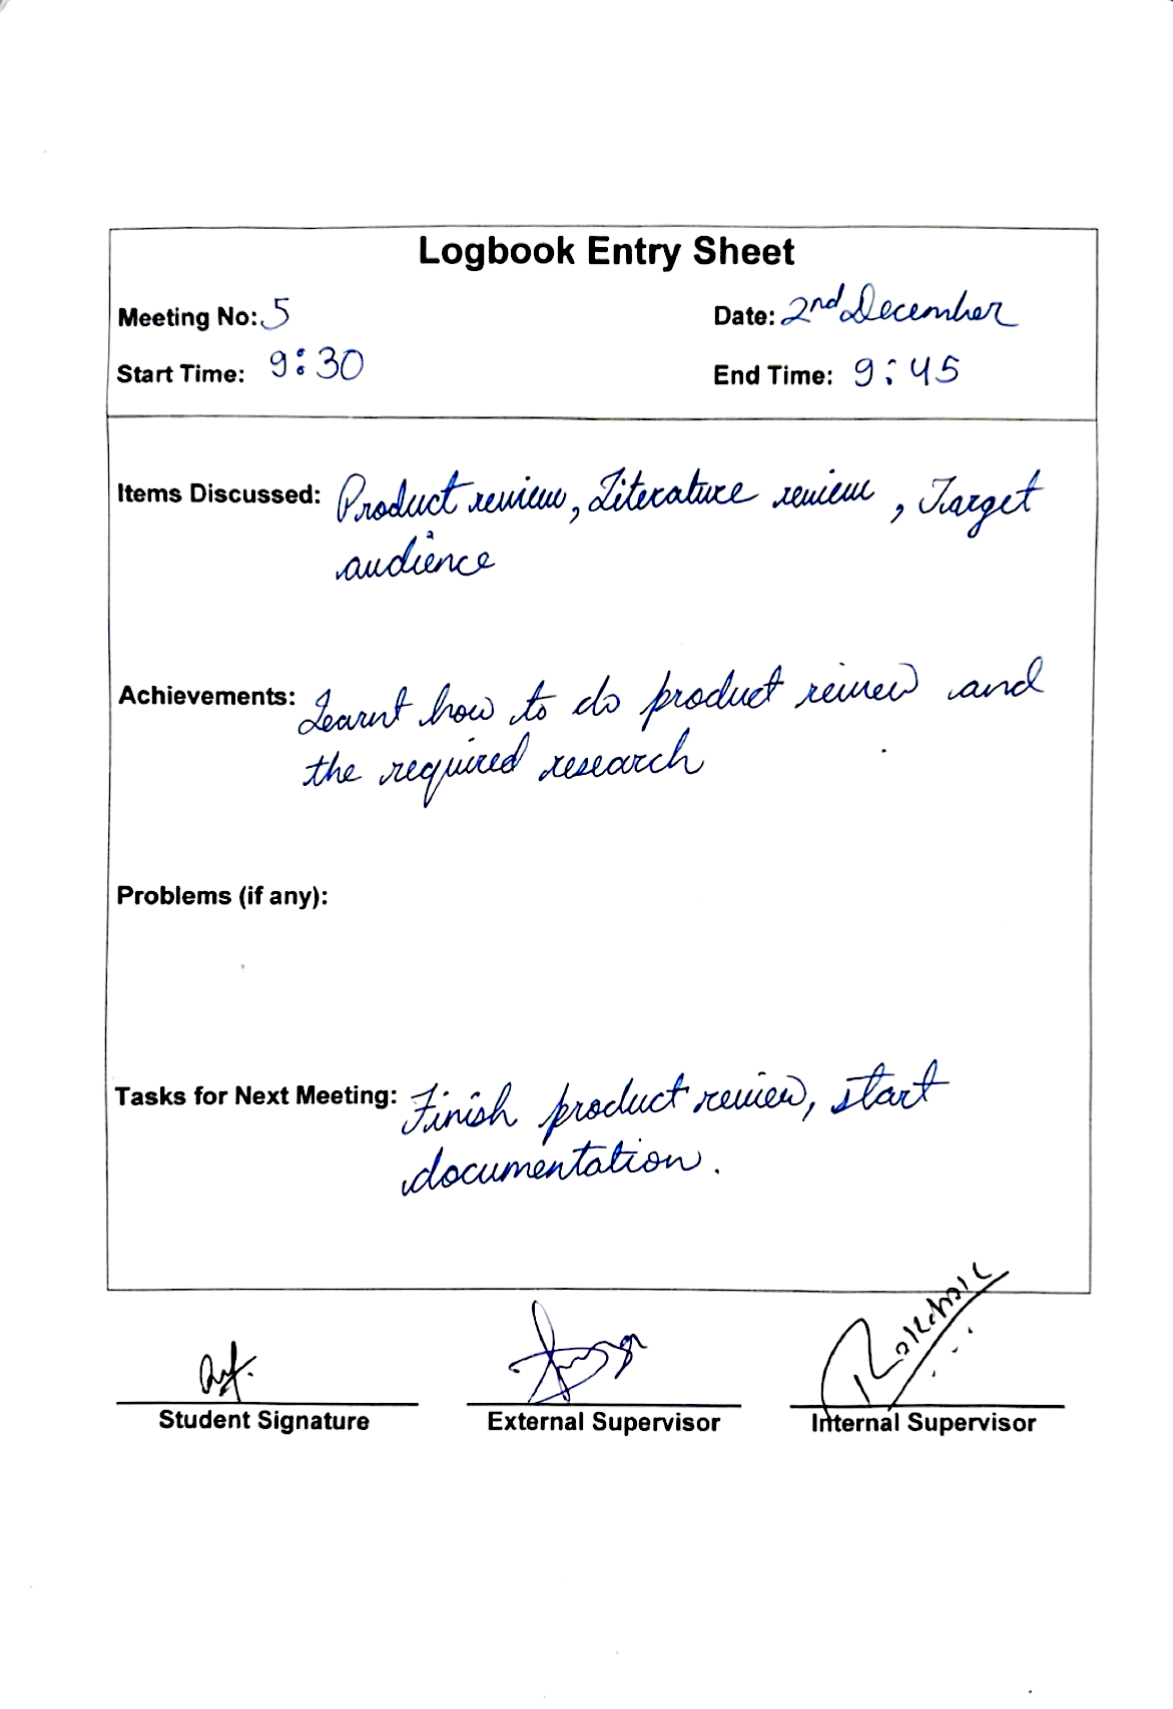 Logbook Entry Sheet
Meeting No: 5 Date: 2nd December
Start Time: 9:30 End Time: 9:45
Items Discussed: Product review, Literature review, Target
audience
Achievements: Learnt how to do product review and
the required research
Problems (if any):
Tasks for Next Meeting: Finish product review, start
documentation.
Student Signature External Supervisor Internal Supervisor